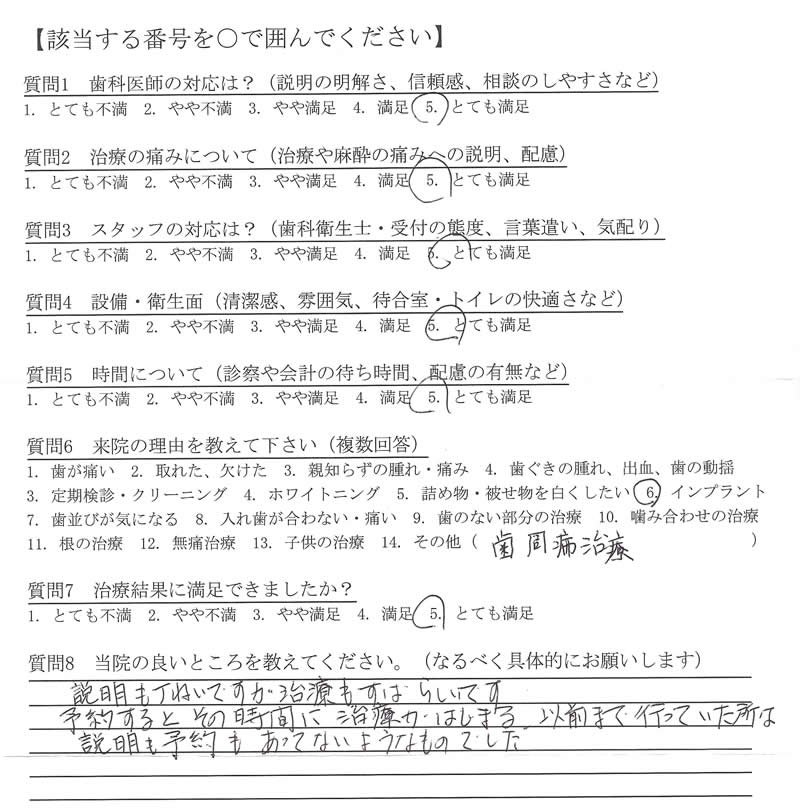 【該当する番号を○で囲んでください】
質問1 歯科医師の対応は?(説明の明解さ、信頼感、相談のしやすさなど)
1. とても不満 2. やや不満 3. やや満足 4. 満足 5. とても満足
質問2 治療の痛みについて(治療や麻酔の痛みへの説明、配慮)
1. とても不満 2. やや不満 3. やや満足 4. 満足 5. とても満足
質問3 スタッフの対応は?(歯科衛生士・受付の態度、言葉遣い、気配り)
1. とても不満 2. やや不満 3. やや満足 4. 満足 5. とても満足
質問4 設備・衛生面(清潔感、雰囲気、待合室・トイレの快適さなど)
1. とても不満 2. やや不満 3. やや満足 4. 満足 5. とても満足
質問5 時間について(診察や会計の待ち時間、配慮の有無など)
1. とても不満 2. やや不満 3. やや満足 4. 満足 5. とても満足
質問6 来院の理由を教えて下さい(複数回答)
1. 歯が痛い 2. 取れた、欠けた 3. 親知らずの腫れ・痛み 4. 歯ぐきの腫れ、出血、歯の動揺
3. 定期検診・クリーニング 4. ホワイトニング 5. 詰め物・被せ物を白くしたい 6. インプラント
7. 歯並びが気になる 8. 入れ歯が合わない・痛い 9. 歯のない部分の治療 10. 噛み合わせの治療
11. 根の治療 12. 無痛治療 13. 子供の治療 14. その他(歯周病治療)
質問7 治療結果に満足できましたか?
1. とても不満 2. やや不満 3. やや満足 4. 満足 5. とても満足
質問8 当院の良いところを教えてください。(なるべく具体的にお願いします)
説明も丁ねいですが治療もすばらいです
予約するとその時間に治療がはじまる 以前まで行っていた所は
説明も予約もあってないようなものでした